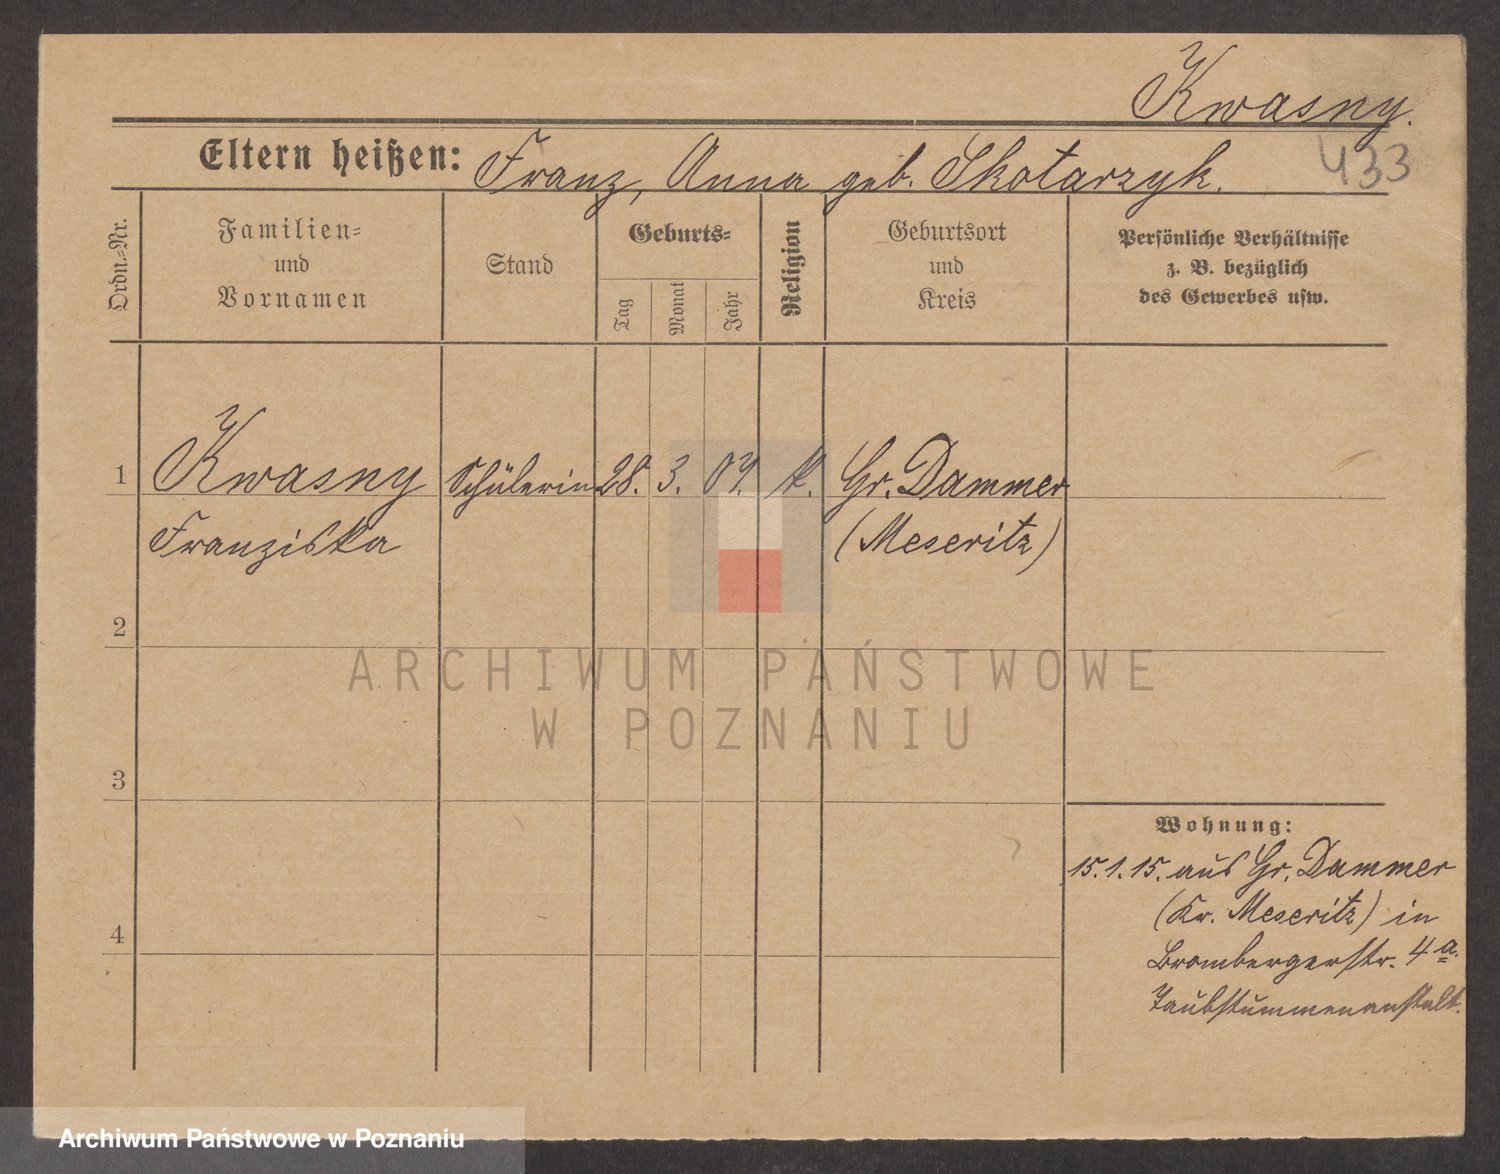 Kwasny.
433
Eltern heißen: Franz, Anna geb. Skotarzyk.
Ordn.=Nr.
Familien=
und
Vornamen
Stand
Geburts=
Tag
Monat
Jahr
Religion
Geburtsort
und
Kreis
Persönliche Verhältnisse
z. B. bezüglich
des Gewerbes usw.
1 Kwasny Schülerin 28. 3. 04. k. Gr. Dammer
Franziska (Meseritz)
2
3
4
Wohnung:
15.1.15. aus Gr. Dammer
(Kr. Meseritz) in
Brombergerstr. 4a.
Taubstummenanstalt.
ARCHIWUM PAŃSTWOWE
W POZNANIU
Archiwum Państwowe w Poznaniu